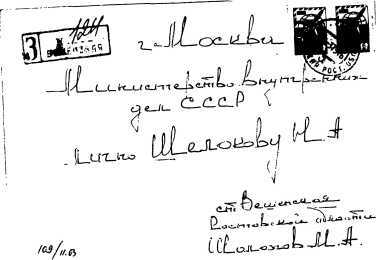 З
г. Москва
Министерство Внутренних
дел СССР
лично Щелокову Н А
ст Вешенская
Ростовской области
Шолохов М. А.